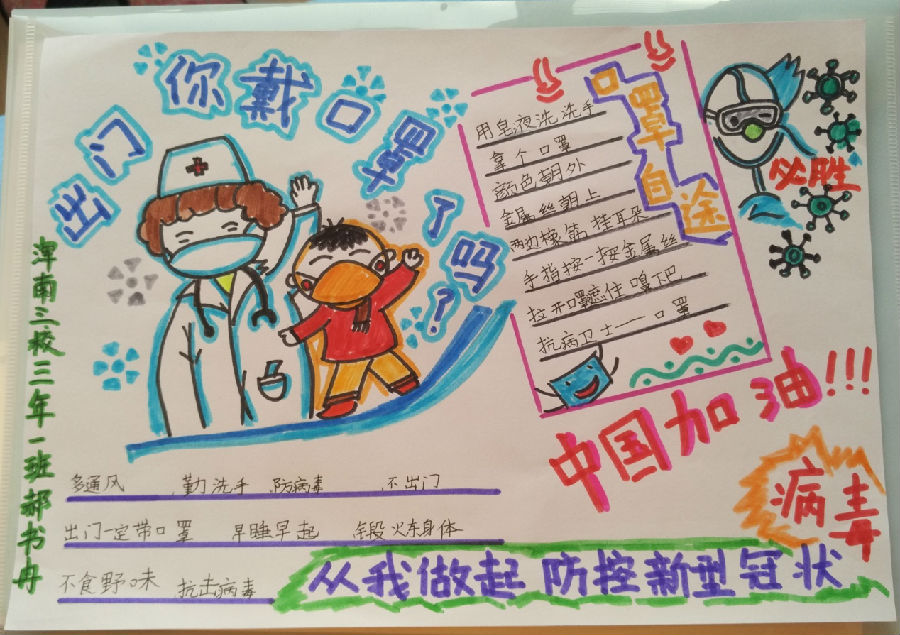 出门你戴口罩了吗?
口罩自途
用皂液洗洗手
拿个口罩
颜色朝外
金属丝朝上
两边橡筋挂耳朵
手指按一按金属丝
拉开口罩遮住嗅下巴
抗病卫士——口罩
必胜
浑南三校三年一班郝书冉
中国加油!!!
病毒
多通风 勤洗手 防病毒 不出门
出门一定带口罩 早睡早起 锻炼身体
不食野味 抗击病毒
从我做起 防控新型冠状